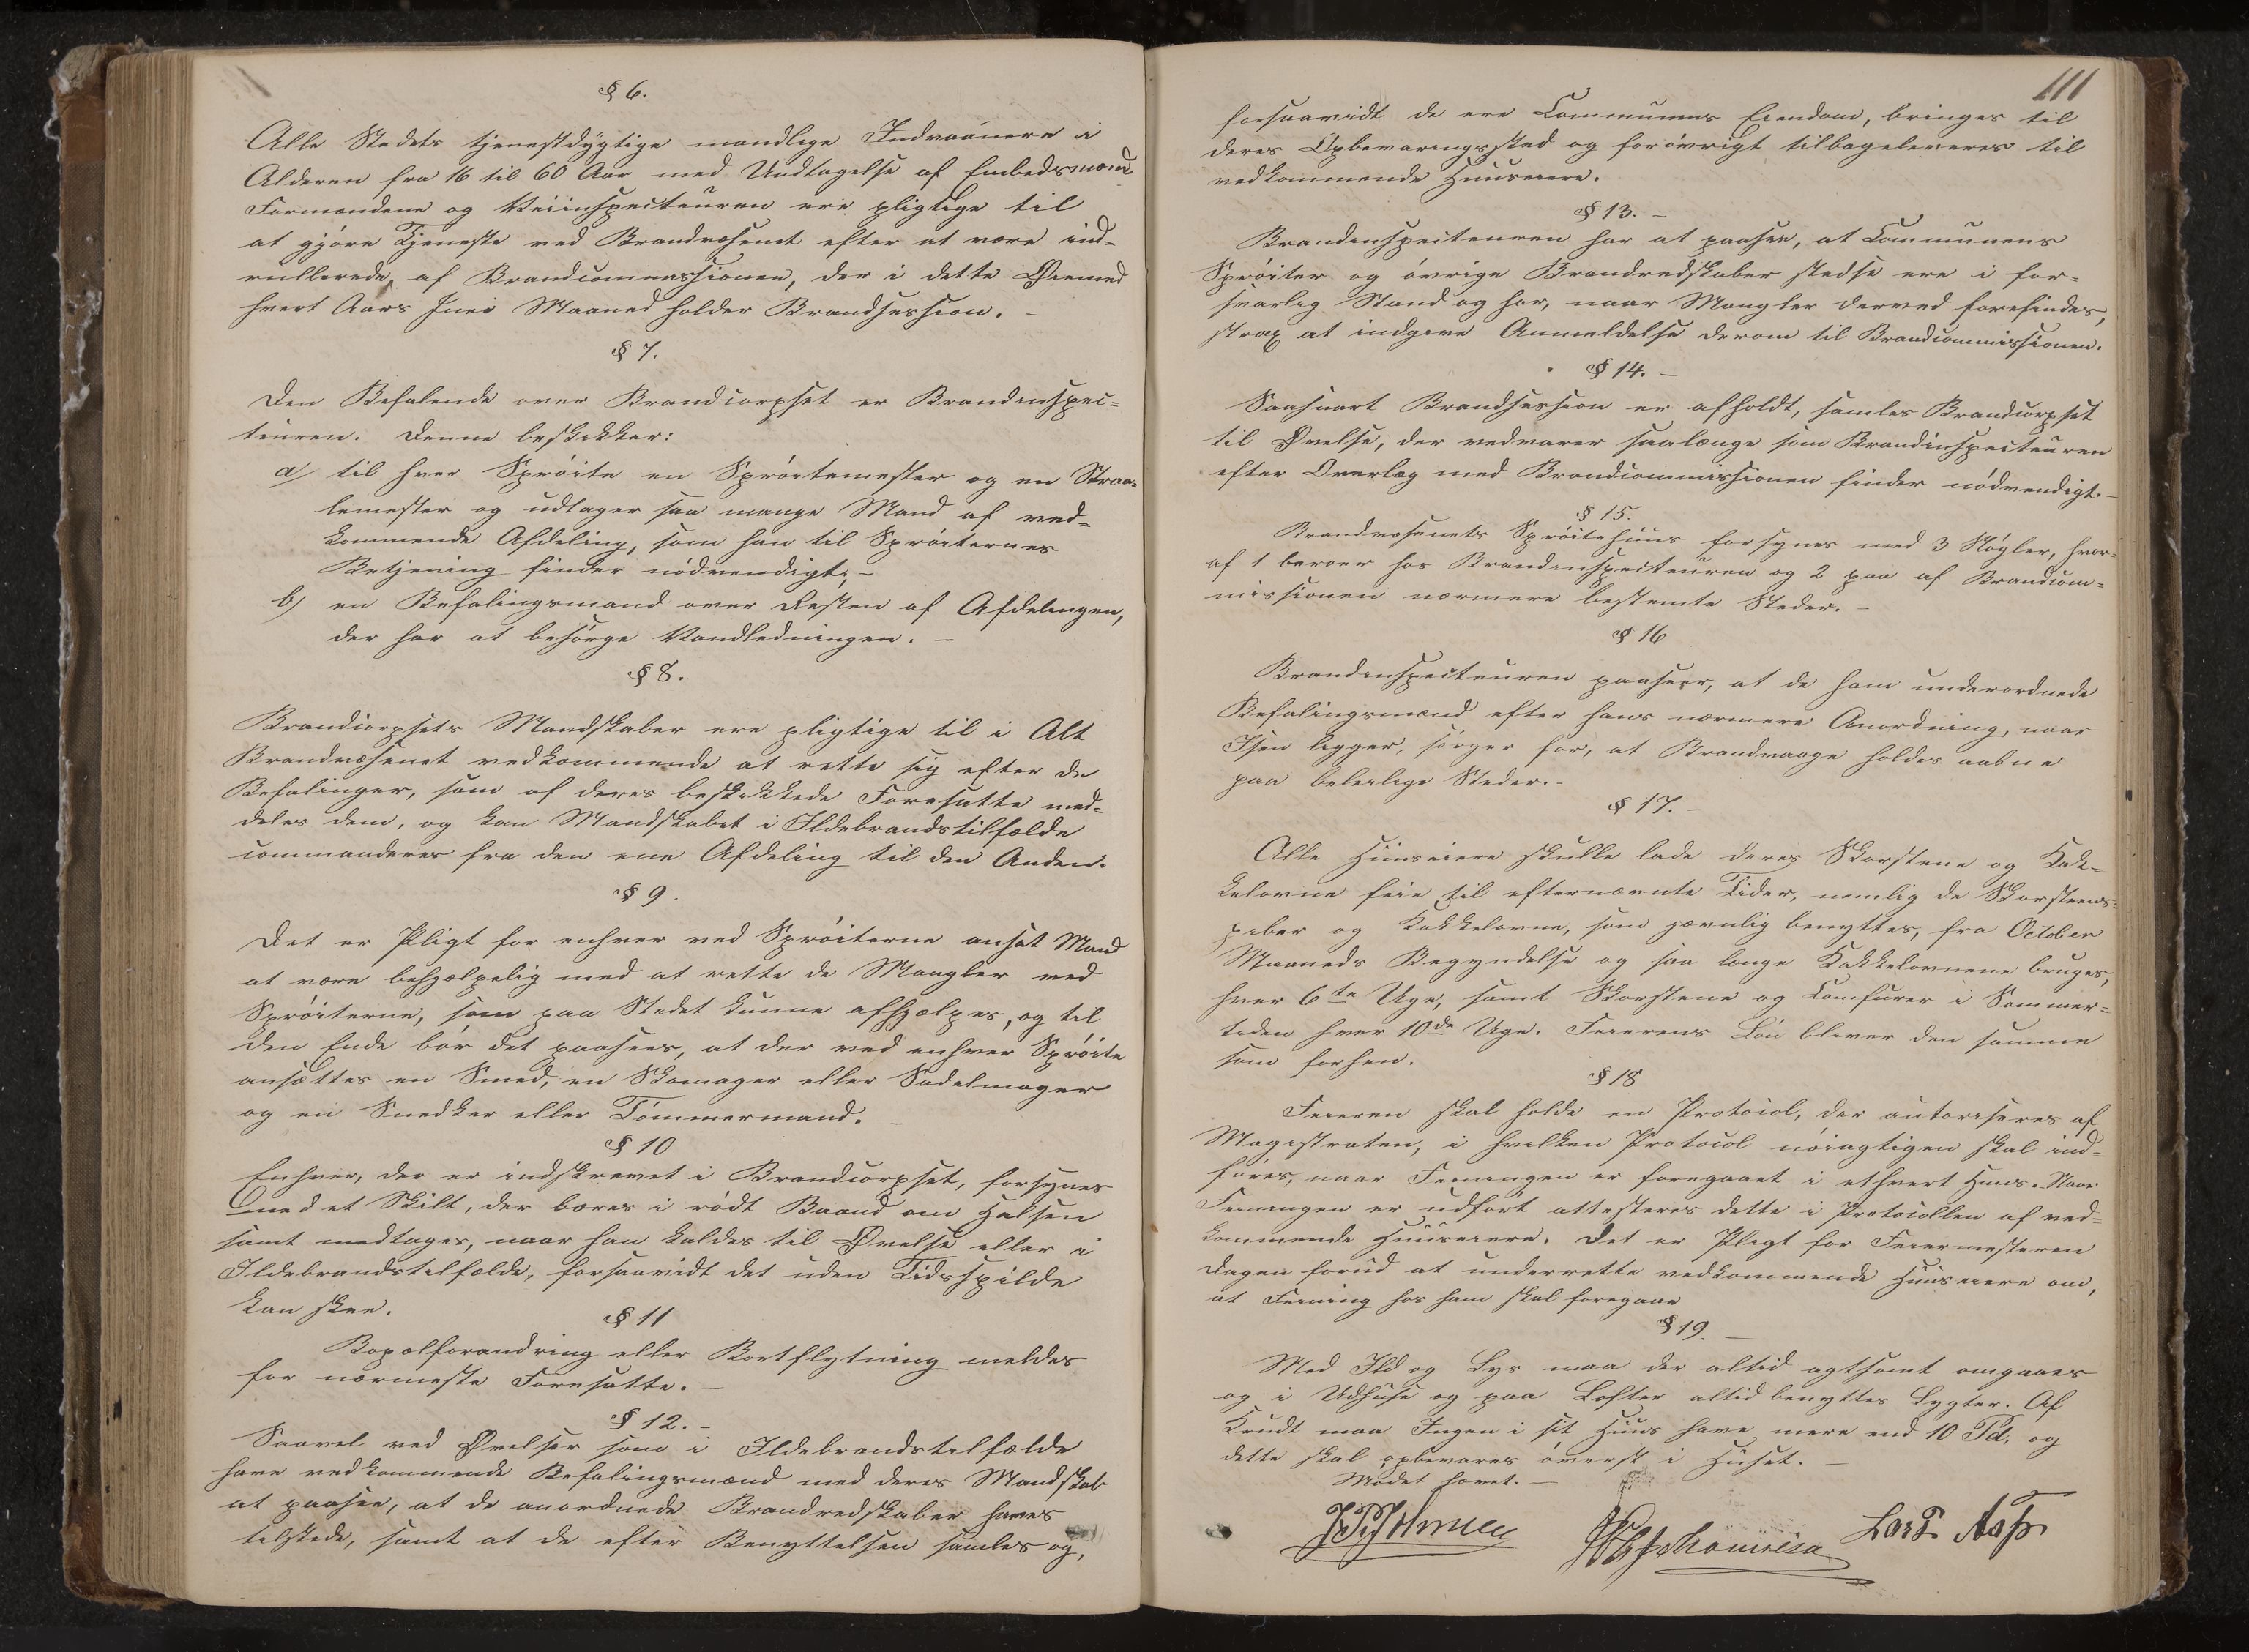 § 6.
Alle Stedets tjenestdygtige mandlige Indvaanere i
Alderen fra 16 til 60 Aar med Undtagelse af Embedsmænd
Formændene og Veiinspecteuren ere pligtige til
at gjöre Tjeneste ved Brandvæsenet efter at være ind-
rullerede af Brandcommissionen, der i dette Öiemed
hvert Aars Juni Maaned holder Brandsession. -
§ 7.
Den Befalende over Brandcorpset er Brandinspec-
teuren. Denne beskikker:
a) til hver Spröite en Spröitemester og en Straa-
lemester og udtager saa mange Mand af ved-
kommende Afdeling, som han til Spröiternes
Betjening finder nödvendigt. -
b) en Befalingsmand over Resten af Afdelingen,
der har at besörge Vandledningen. -
§ 8.
Brandcorpsets Mandskaber ere pligtige til i Alt
Brandvæsenet vedkommende at rette sig efter de
Befalinger, som af deres beskikkede Foresatte med-
deles dem, og kan Mandskabet i Ildebrandstilfælde
commanderes fra den ene Afdeling til den Anden.
§ 9.
Det er Pligt for enhver ved Spröiterne ansat Mand
at være behjælpelig med at rette de Mangler ved
Spröiterne, som paa Stedet kunne afhjælpes, og til
den Ende bör det paasees, at der ved enhver Spröite
ansættes en Smed, en Skomager eller Sadelmager
og en Snedker eller Tömmermand. -
§ 10
Enhver, der er indskrevet i Brandcorpset, forsynes
med et Skilt, der bæres i rödt Baand om Halsen
samt medtages, naar han kaldes til Övelse eller i
Ildebrandstilfælde, forsaavidt det uden Tidsspilde
kan skee.
§ 11
Bopælforandring eller Bortflytning meldes
for nærmeste Foresatte. -
§ 12. -
Saavel ved Övelser som i Ildebrandstilfælde
have vedkommende Befalingsmænd med deres Mandskab
at paasee, at de anordnede Brandredskaber haves
tilstede, samt at de efter Benyttelsen samles og,
111
forsaavidt de ere Communens Eiendom, bringes til
deres Opbevaringssted og forövrigt tilbageleveres til
vedkommende Huuseiere.
§ 13. -
Brandinspecteuren har at paasee, at Communens
Spröiter og övrige Brandredskaber stedse ere i for-
svarlig Stand og har, naar Mangler derved forefindes,
strax at indgive Anmeldelse derom til Brandcommissionen.
§ 14. -
Saasnart Brandsession er afholdt, samles Brandcorpset
til Övelse, der vedvarer saalænge som Brandinspecteuren
efter Overlæg med Brandcommissionen finder nödvendigt. -
§ 15.
Brandvæsenets Spröitehuus forsynes med 3 Nögler, hvor-
af 1 beroer hos Brandinspecteuren og 2 paa af Brandcom-
missionen nærmere bestemte Steder. -
§ 16
Brandinspecteuren paaseer, at de ham underordnede
Befalingsmænd efter hans nærmere Anordning, naar
Isen ligger, sörger for, at Brandvaage holdes aabne
paa beleilige Steder. -
§ 17. -
Alle Huuseiere skulle lade deres Skorstene og Kak-
kelovne feie til efternævnte Tider, nemlig de Skorsteens-
piber og Kakkelovne, som jævnlig benyttes, fra October
Maaneds Begyndelse og saa længe Kakkelovnene bruges,
hver 6te Uge, samt Skorstene og Comfurer i Sommer-
tiden hver 10de Uge. Feierens Lön bliver den samme
som forhen.
§ 18
Feieren skal holde en Protocol, der autoriseres af
Magistraten, i hvilken Protocol nöiagtigen skal ind-
föres, naar Feiningen er foregaaet i ethvert Huus. Naar
Feiningen er udfört attesteres dette i Protocollen af ved-
kommende Huuseiere. Det er Pligt for Feiermesteren
Dagen forud at underrette vedkommende Huuseiere om,
at Feining hos ham skal foregaae
§ 19. -
Med Ild og Lys maa der altid agtsomt omgaaes
og i Udhuse og paa Lofter altid benyttes Lygter. Af
Krudt maa Ingen i sit Huus have mere end 10 Pd. og
dette skal opbevares överst i Huset. -
Mödet hævet. -